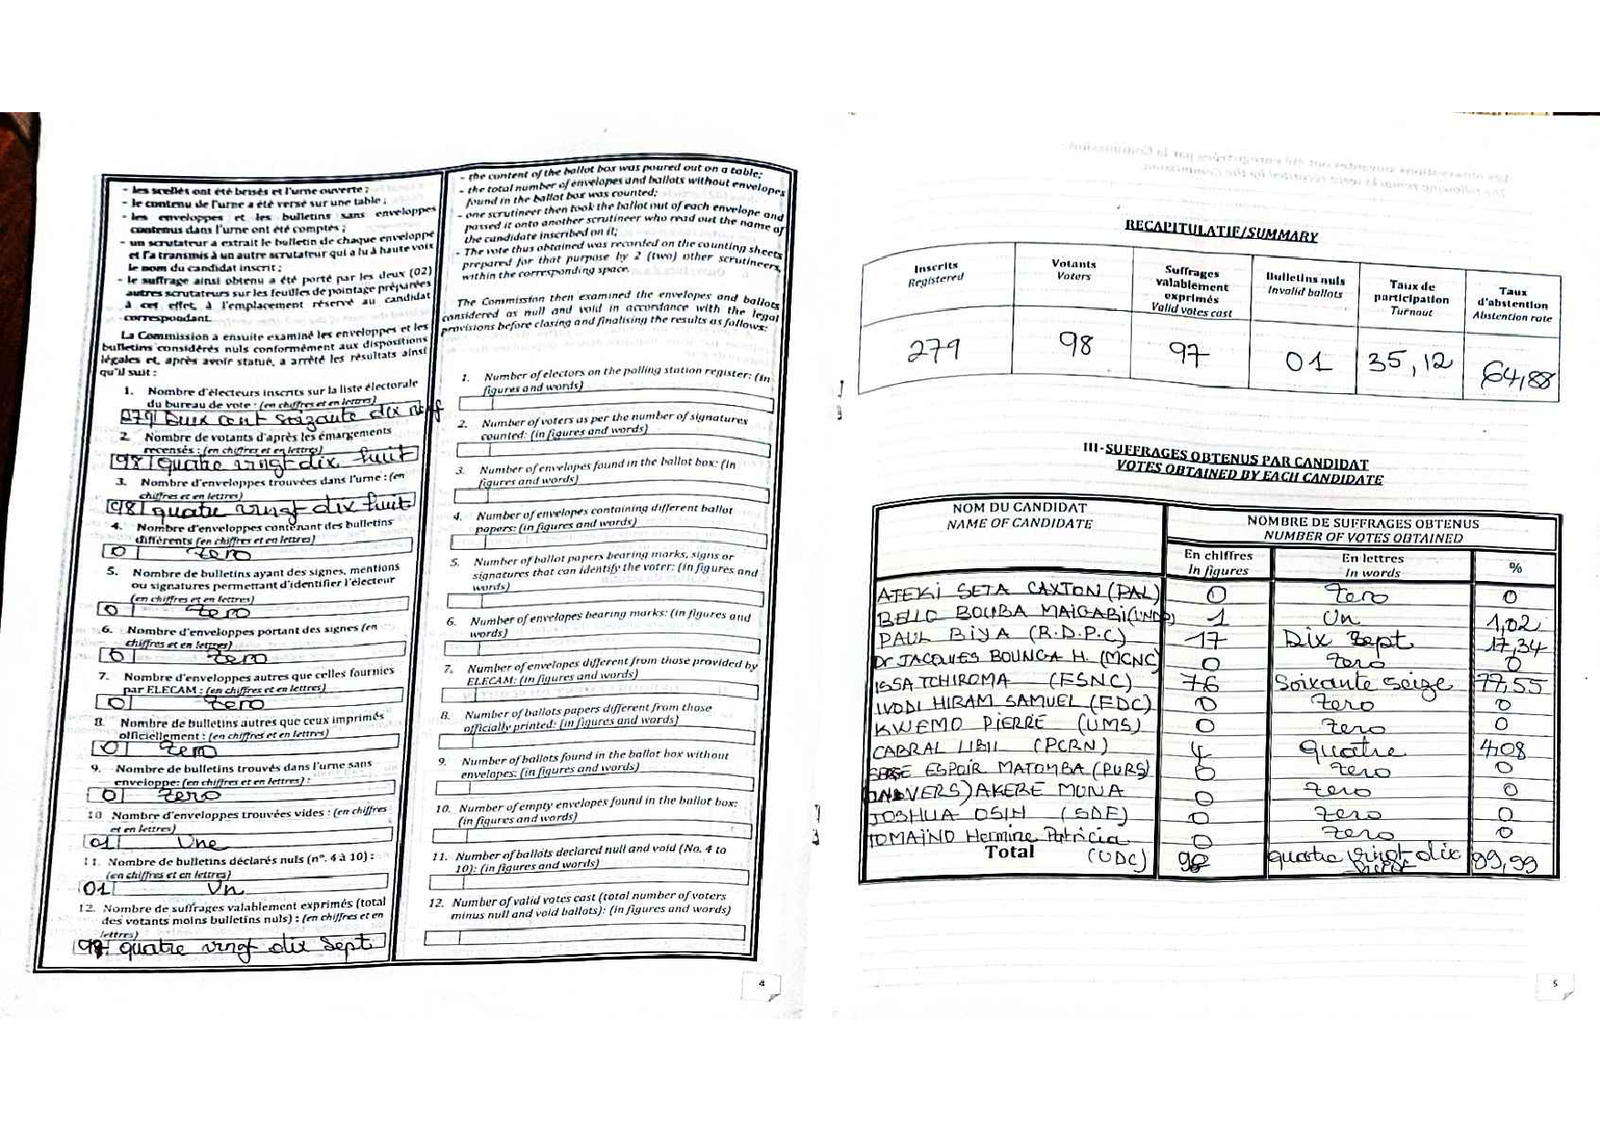 - les scellés ont été brisés et l'urne ouverte ;
- le contenu de l'urne a été versé sur une table ;
- les enveloppes et les bulletins sans enveloppes
contenus dans l'urne ont été comptés ;
- un scrutateur a extrait le bulletin de chaque enveloppe
et l'a transmis à un autre scrutateur qui a lu à haute voix
le nom du candidat inscrit ;
- le suffrage ainsi obtenu a été porté par les deux (02)
autres scrutateurs sur les feuilles de pointage préparées
à cet effet, à l'emplacement réservé au candidat
correspondant.
La Commission a ensuite examiné les enveloppes et les
bulletins considérés nuls conformément aux dispositions
légales et, après avoir statué, a arrêté les résultats ainsi
qu'il suit :
1. Nombre d'électeurs inscrits sur la liste électorale
du bureau de vote : (en chiffres et en lettres)
279 Deux cent soizante dix neuf
2. Nombre de votants d'après les émargements
recensés : (en chiffres et en lettres)
98 quatre vingt dix huit
3. Nombre d'enveloppes trouvées dans l'urne : (en
chiffres et en lettres)
98 quatre vingt dix huit
4. Nombre d'enveloppes contenant des bulletins
différents (en chiffres et en lettres)
0 zero
5. Nombre de bulletins ayant des signes, mentions
ou signatures permettant d'identifier l'électeur
(en chiffres et en lettres)
0 zero
6. Nombre d'enveloppes portant des signes (en
chiffres et en lettres)
0 zero
7. Nombre d'enveloppes autres que celles fournies
par ELECAM : (en chiffres et en lettres)
0 zero
8. Nombre de bulletins autres que ceux imprimés
officiellement : (en chiffres et en lettres)
0 zero
9. Nombre de bulletins trouvés dans l'urne sans
enveloppe: (en chiffres et en lettres) :
0 zero
10 Nombre d'enveloppes trouvées vides : (en chiffres
et en lettres)
01 Une
11. Nombre de bulletins déclarés nuls (n°. 4 à 10) :
(en chiffres et en lettres)
01 Un
12. Nombre de suffrages valablement exprimés (total
des votants moins bulletins nuls) : (en chiffres et en
lettres)
97 quatre vingt dix sept
- the content of the ballot box was poured out on a table;
- the total number of envelopes and ballots without envelopes
found in the ballot box was counted;
- one scrutineer then took the ballot out of each envelope and
passed it onto another scrutineer who read out the name of
the candidate inscribed on it;
- The vote thus obtained was recorded on the counting sheets
prepared for that purpose by 2 (two) other scrutineers,
within the corresponding space.
The Commission then examined the envelopes and ballots
considered as null and void in accordance with the legal
provisions before closing and finalising the results as follows:
1. Number of electors on the polling station register: (in
figures and words)
2. Number of voters as per the number of signatures
counted: (in figures and words)
3. Number of envelopes found in the ballot box: (in
figures and words)
4. Number of envelopes containing different ballot
papers: (in figures and words)
5. Number of ballot papers bearing marks, signs or
signatures that can identify the voter: (in figures and
words)
6. Number of envelopes bearing marks: (in figures and
words)
7. Number of envelopes different from those provided by
ELECAM: (in figures and words)
8. Number of ballots papers different from those
officially printed: (in figures and words)
9. Number of ballots found in the ballot box without
envelopes: (in figures and words)
10. Number of empty envelopes found in the ballot box:
(in figures and words)
11. Number of ballots declared null and void (No. 4 to
10): (in figures and words)
12. Number of valid votes cast (total number of voters
minus null and void ballots): (in figures and words)
4
RECAPITULATIF/SUMMARY
Inscrits Registered
Votants Voters
Suffrages valablement exprimés Valid votes cast
Bulletins nuls Invalid ballots
Taux de participation Turnout
Taux d'abstention Abstention rate
279 98 97 01 35,12 64,88
III-SUFFRAGES OBTENUS PAR CANDIDAT
VOTES OBTAINED BY EACH CANDIDATE
NOM DU CANDIDAT
NAME OF CANDIDATE
NOMBRE DE SUFFRAGES OBTENUS
NUMBER OF VOTES OBTAINED
En chiffres In figures
En lettres In words
%
ATEKI SETA CAXTON (PAL) 0 zero 0
BELLO BOUBA MAIGARI (UNDP) 1 Un 1,02
PAUL BIYA (R.D.P.C) 17 Dix sept 17,34
Dr JACQUES BOUNGA H. (MCNC) 0 zero 0
ISSA TCHIROMA (FSNC) 76 Soixante seize 77,55
IYODI HIRAM SAMUEL (FDC) 0 zero 0
KWEMO PIERRE (UMS) 0 zero 0
CABRAL LIBII (PCRN) 4 quatre 4,08
SERGE ESPOIR MATOMBA (PURS) 0 zero 0
(UNIVERS) AKERE MUNA 0 zero 0
JOSHUA OSIH (SDF) 0 zero 0
TOMAINO Hermine Patricia 0 zero 0
Total (UDC) 98 quatre vingt-dix 99,99
5